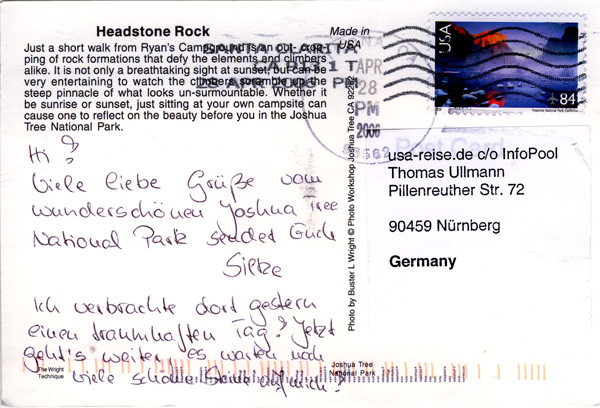 Headstone Rock
Just a short walk from Ryan's Campground is an out- crop-
ping of rock formations that defy the elements and climbers
alike. It is not only a breathtaking sight at sunset, but can be
very entertaining to watch the climbers scramble up the
steep pinnacle of what looks un-surmountable. Whether it
be sunrise or sunset, just sitting at your own campsite can
cause one to reflect on the beauty before you in the Joshua
Tree National Park.
Made in
USA
SANTA CLARITA
CA 913 1 T
28 APR 2006 PM
APR
28
PM
2006
USA
84
Hi!
Viele liebe Grüße vom
wunderschönen Joshua Tree
National Park sendet Euch
Silke
Ich verbrachte dort gestern
einen traumhaften Tag! Jetzt
geht's weiter, es warten noch
viele schöne Steine auf mich!
The Wright
Technique
Joshua Tree
National Park
Photo by Buster L. Wright © Photo Workshop Joshua Tree CA 92252
Post Card
usa-reise.de c/o InfoPool
Thomas Ullmann
Pillenreuther Str. 72
90459 Nürnberg
Germany